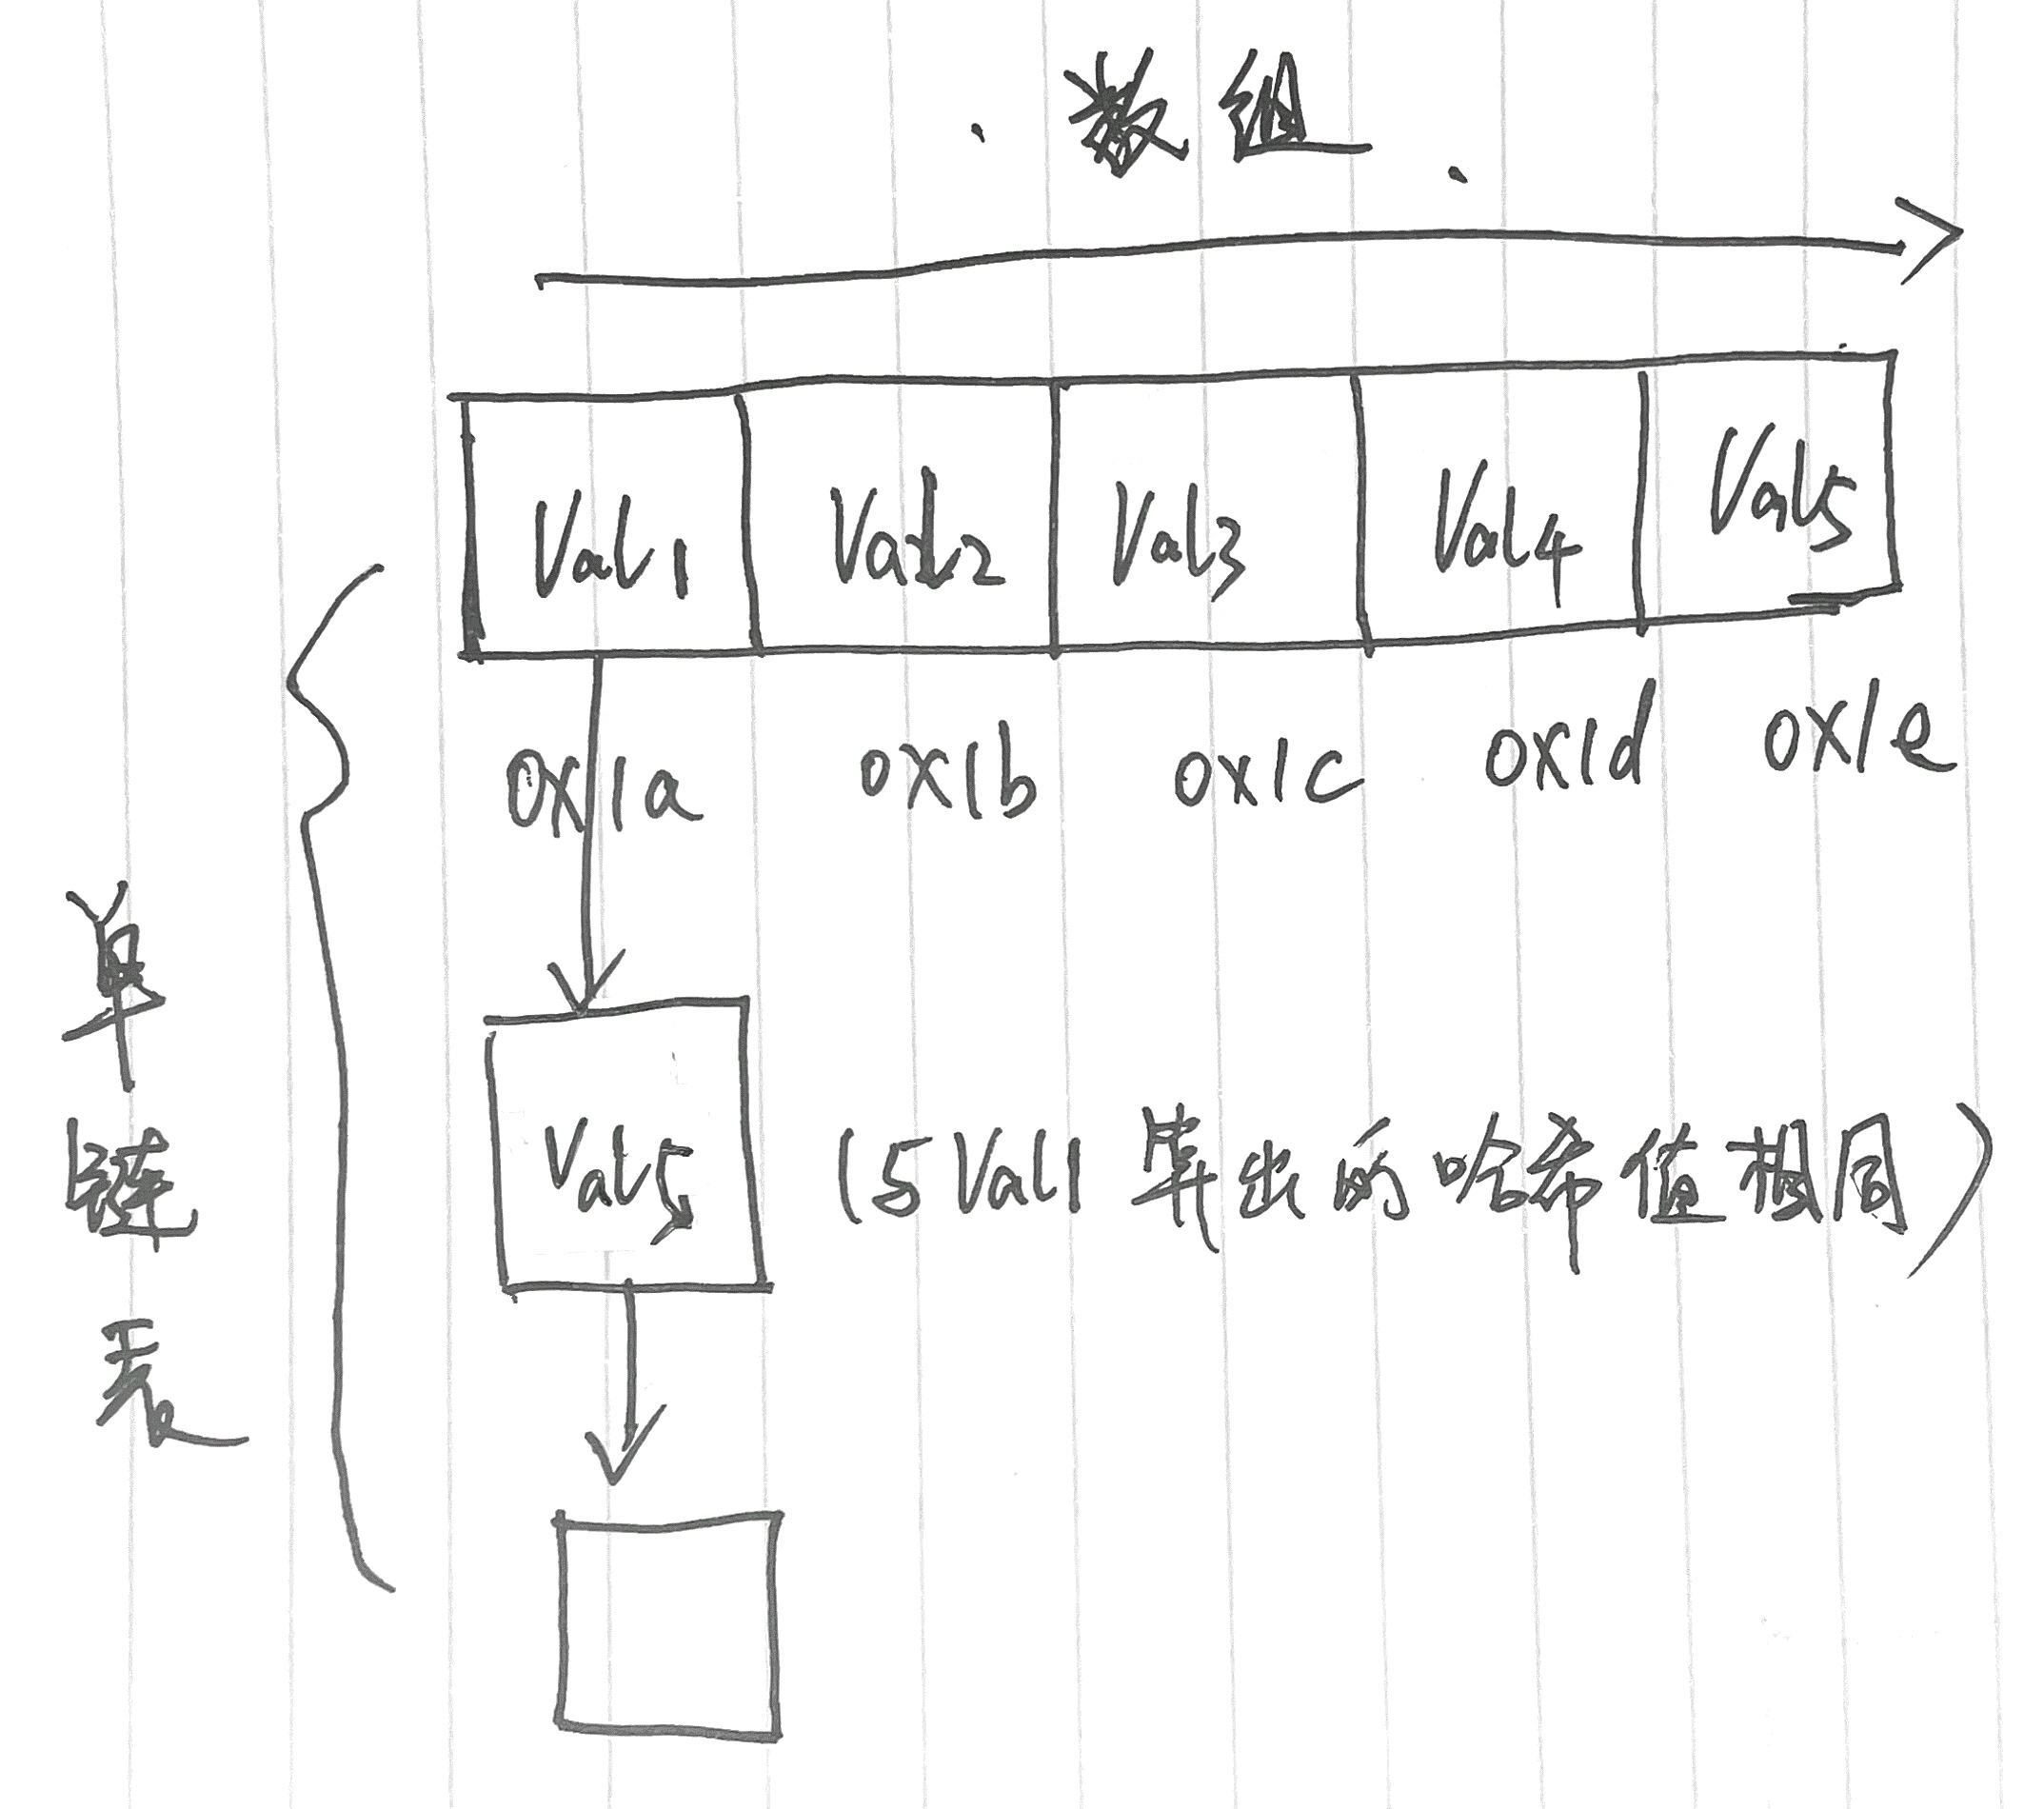 数组
Val1 Val2 Val3 Val4 Val5
0x1a 0x1b 0x1c 0x1d 0x1e
单链表
Val5 (5 Val1 算出的哈希值相同)